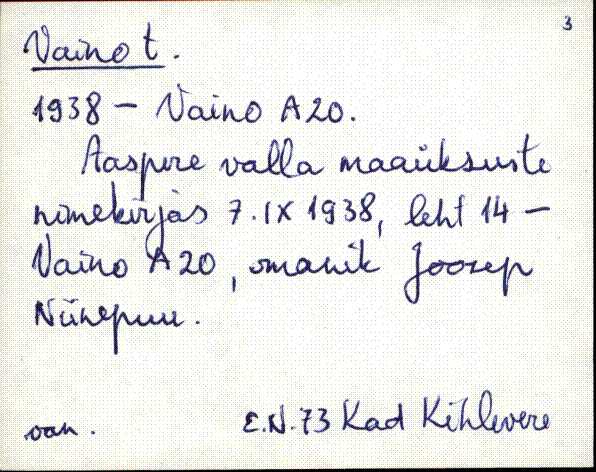 3
Vaino t.
1938 - Vaino A20.
Aaspere valla maaüksuste
nimekirjas 7.IX 1938, leht 14 -
Vaino A20, omanik Joosep
Niinepuu.
van.
E.N.73 Kad Kihlevere